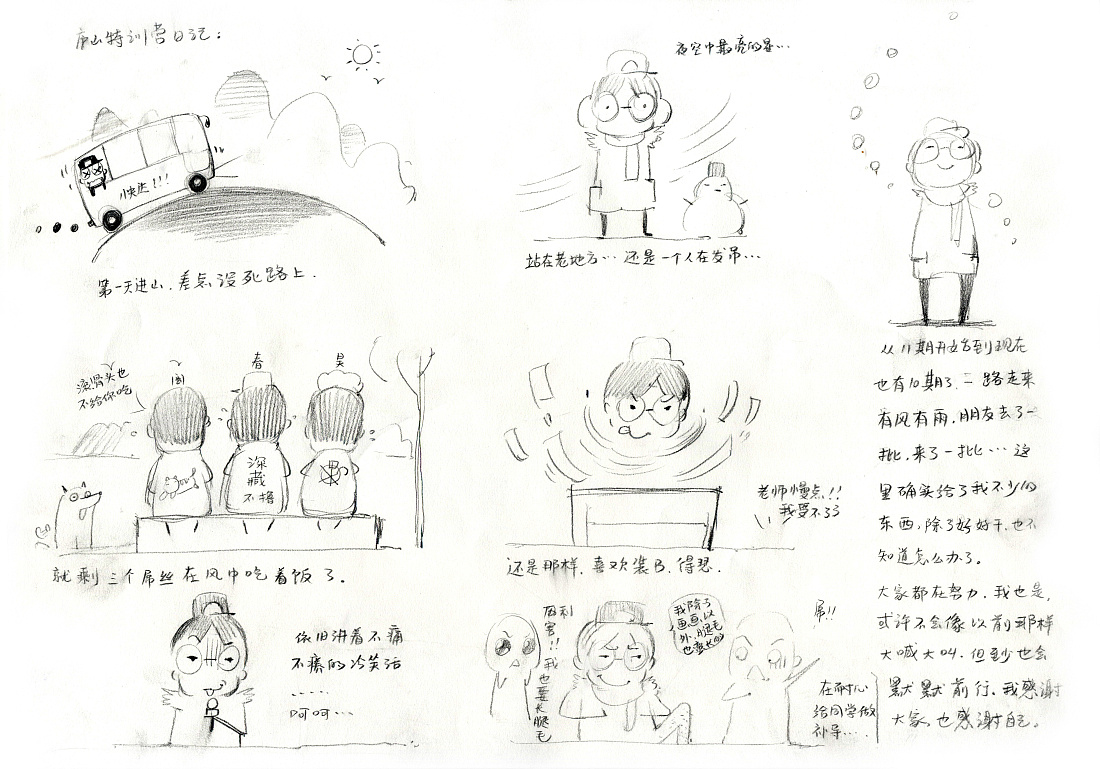 庐山特训营日记：
快达!!!
第一天进山，差点没死路上．
夜空中最亮的星…
站在老地方…还是一个人在发吊…
滚骨头也
不给你吃
闰
春
昊
深
藏
不撸
就剩三个屌丝在风中吃着饭了．
老师慢点!!
我受不了了
还是那样．喜欢装B．得瑟．
依旧讲着不痛
不痒的冷笑话
……
呵呵…
厉害!!
我也要长腿毛
我除了
画画以
外，腿毛
也要长的
屌!!
在耐心
给同学做
补导…．
从11期开始到现在
也有10期了．一路走来
有风有雨．朋友去了一
批．来了一批…这
里确实给了我不少的
东西，除了好好干，也不
知道怎么办了。
大家都在努力．我也是，
或许不会像以前那样
大喊大叫．但至少也会
默默前行．我感谢
大家，也感谢自己。